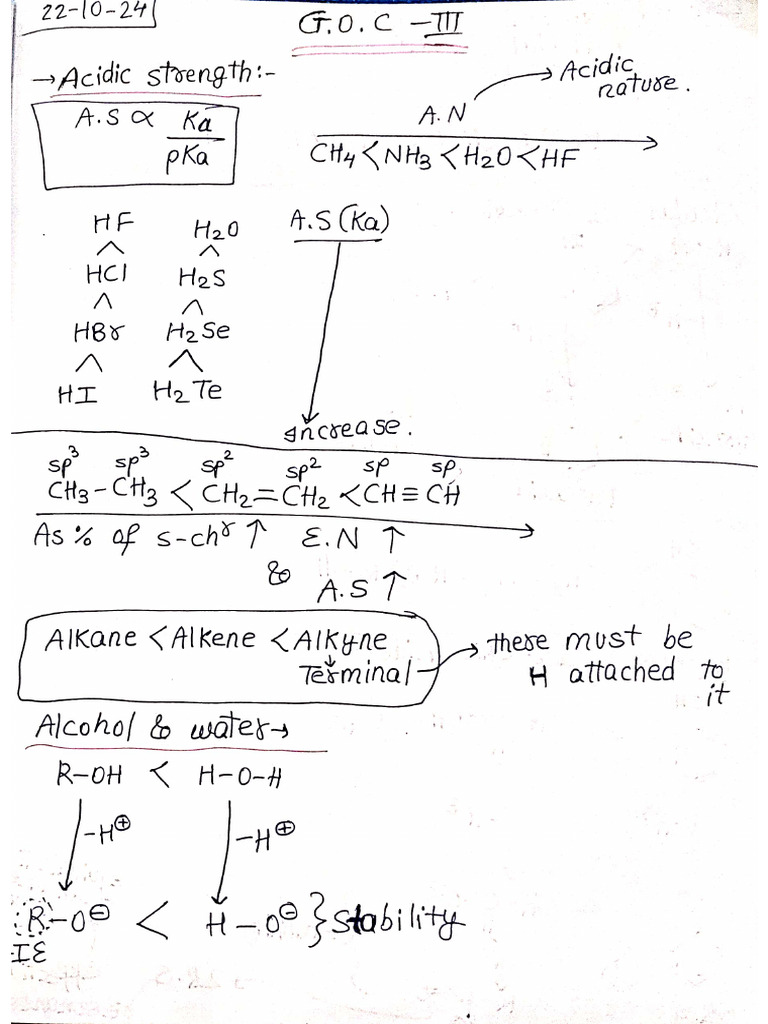 22-10-24
G.O.C - III
→ Acidic strength:-
A.S ∝ Ka / pKa
A.N → Acidic nature.
CH4 < NH3 < H2O < HF
HF H2O A.S (Ka)
^ ^
HCl H2S
^ ^
HBr H2Se
^ ^
HI H2Te
Increase.
sp3 sp3 sp2 sp2 sp sp
CH3-CH3 < CH2=CH2 < CH≡CH
As % of s-chr ↑ E.N ↑
& A.S ↑
Alkane < Alkene < Alkyne
↓
Terminal → there must be
H attached to
it
Alcohol & water→
R-OH < H-O-H
-H⊕ -H⊕
R-O⊖ < H-O⊖ } Stability
IE